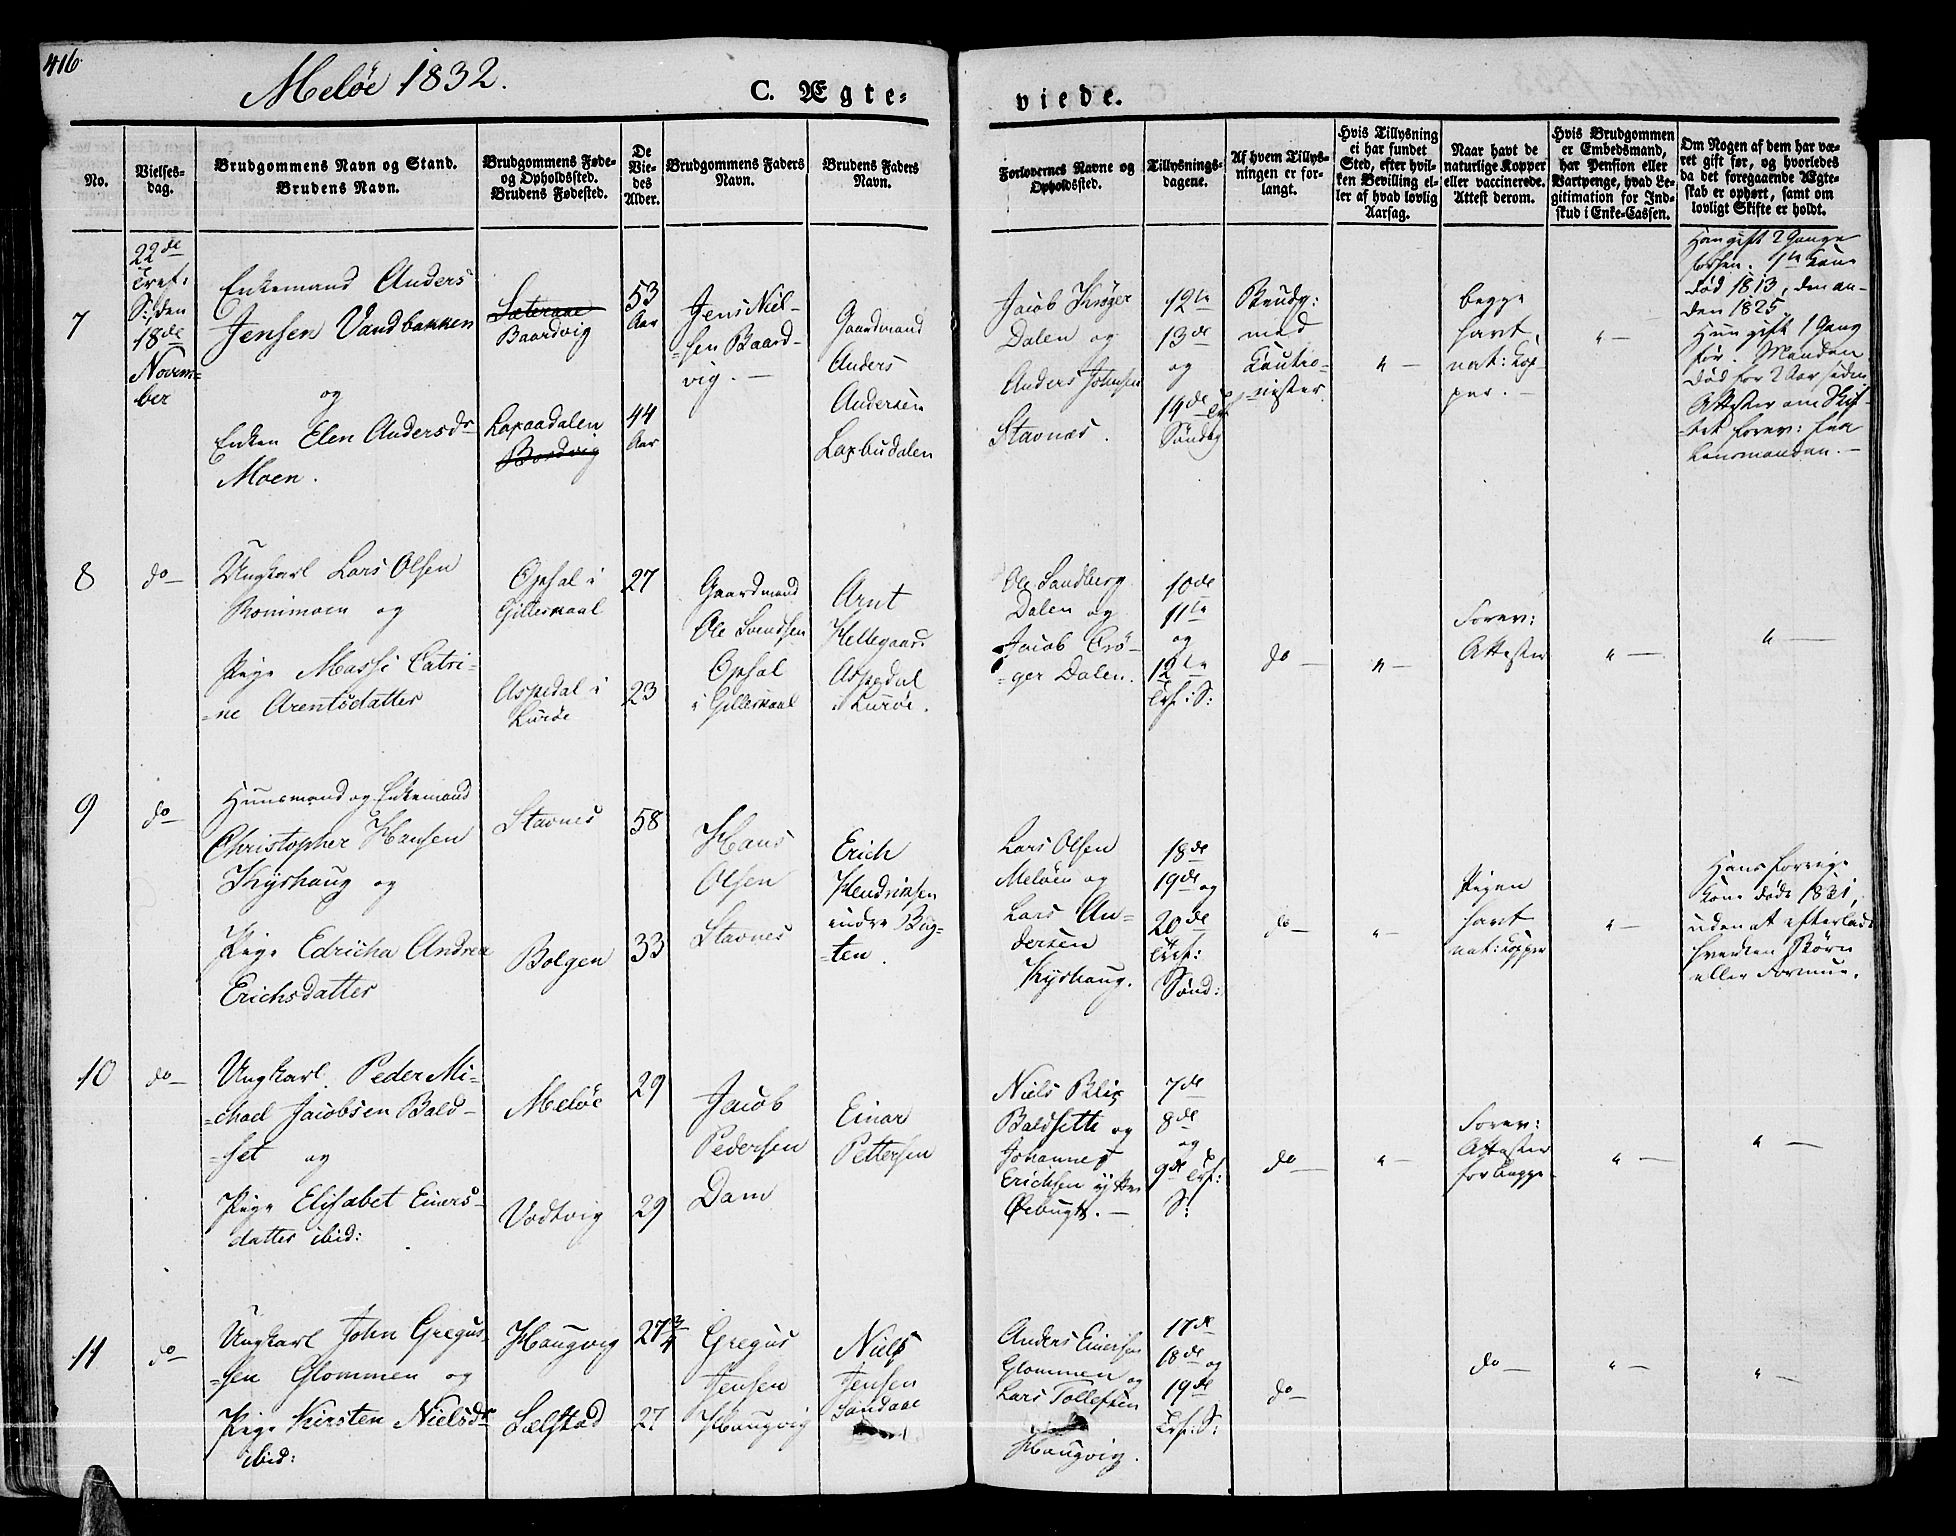 416
Meløe 1832.
C. Ægte-
viede.
No.
Vielses-
dag.
Brudgommens Navn og Stand.
Brudens Navn.
Brudgommens Føde-
og Opholdssted.
Brudens Fødested.
De
Vie-
des
Alder.
Brudgommens Faders
Navn.
Brudens Faders
Navn.
Forlovernes Navne og
Opholdssted.
Tillysnings-
dagene.
Af hvem Tillys-
ningen er for-
langt.
Hvis Tillysning
ei har fundet
Sted, efter hvil-
ken Bevilling el-
ler af hvad lovlig
Aarsag.
Naar havt de
naturlige Kopper
eller vaccinerede.
Attest derom.
Hvis Brudgommen
er Embedsmand,
har Pension eller
Vartpenge, hvad Le-
gitimation for Ind-
skud i Enke-Cassen.
Om Nogen af dem har væ-
ret gift før, og hvorledes
da det foregaaende Ægte-
skab er ophørt, samt om
lovligt Skifte er holdt.
7
22de
Tref:
S:, den
18de
Novem-
ber
Enkemand Anders
Jensen Vandbakken
og
Enken Elen Andersdr
Moen.
Baardvig
Laxaadalen
Bordvig
53
Aar
44
Aar
Jens Niel-
-sen Baard-
vig. —
Gaardmand
Anders
Andersen
Laxbudalen
Jacob Krøger
Dalen og
Anders Johnsen
Stavnes.
12te
13de
og
14de Trf
Søndag
Brudg:
med
Cautio-
-nister.
" —
begge
havt
nat: Kop-
per. —
" —
Han gift 2 Gange
forhen. 1te Kone
død 1813, den an-
den 1825.
Hun gift 1 Gang
før. Manden
død for 2 Aar siden
Attester om Skif-
tet forev: fra
Lensmanden. —
8
do —
Ungkarl Lars Olsen
og
Pige Massi Catri-
-ne Arentsdatter
Opsal i
Gilleskaal
Aspedal i
Lurøe
27
23
Gaardmand
Ole Svendsen
Opsal
i Gilleskaal
Arnt
Hellegaard
Aspedal
i Lurøe.
Ole Sandberg
Dalen og
Jacob Crø-
-ger Dalen.
10de
11te
og
12te
Trf: S:
do —
" —
Forev:
Attester
" —
" —
9
do —
Huusmand og Enkemand
Christopher Hansen
Kyshaug og
Pige Edricha Andrea
Erichsdatter
Stavnes
Bolgen
58
33
Hans
Olsen
Stavnes
Erich
Hendriksen
indre Big-
-ten.
Lars Olsen
Meløen og
Lars An-
dersen
Kyshaug.
18de
19de og
20de
Tref:
Sønd:
do —
" —
Pigen
havt
nat: Kopper
" —
Hans forrige
Kone døde 1831,
uden at efterlade
hverken Børn
eller Formue.
10
do —
Ungkarl Peder Mi-
-chael Jacobsen Bald-
-set og
Pige Elisabet Einers-
datter ibid:
Meløe
Vadtvig
29
29
Jacob
Pedersen
Dam
Einar
Pettersen
Niels Blix
Baldsette og
Johannes
Erichsen ytre
7de
8de
og
9de Trf:
S:
do —
" —
Forev:
Attester
for begge
" —
" —
11
do —
Ungkarl John Gregus-
-sen Glommen og
Pige Kirsten Nielsdr
ibid:
Haugvig
Sælstad
27 3/4
27
Gregus
Jensen
Haugvig
Niels
Jensen
Sandaae
Anders Einersen
Glommen og
Lars Tollefsen
Haugvig.
17de
18de og
19de
Trf: S:
do —
do —
" —
" —